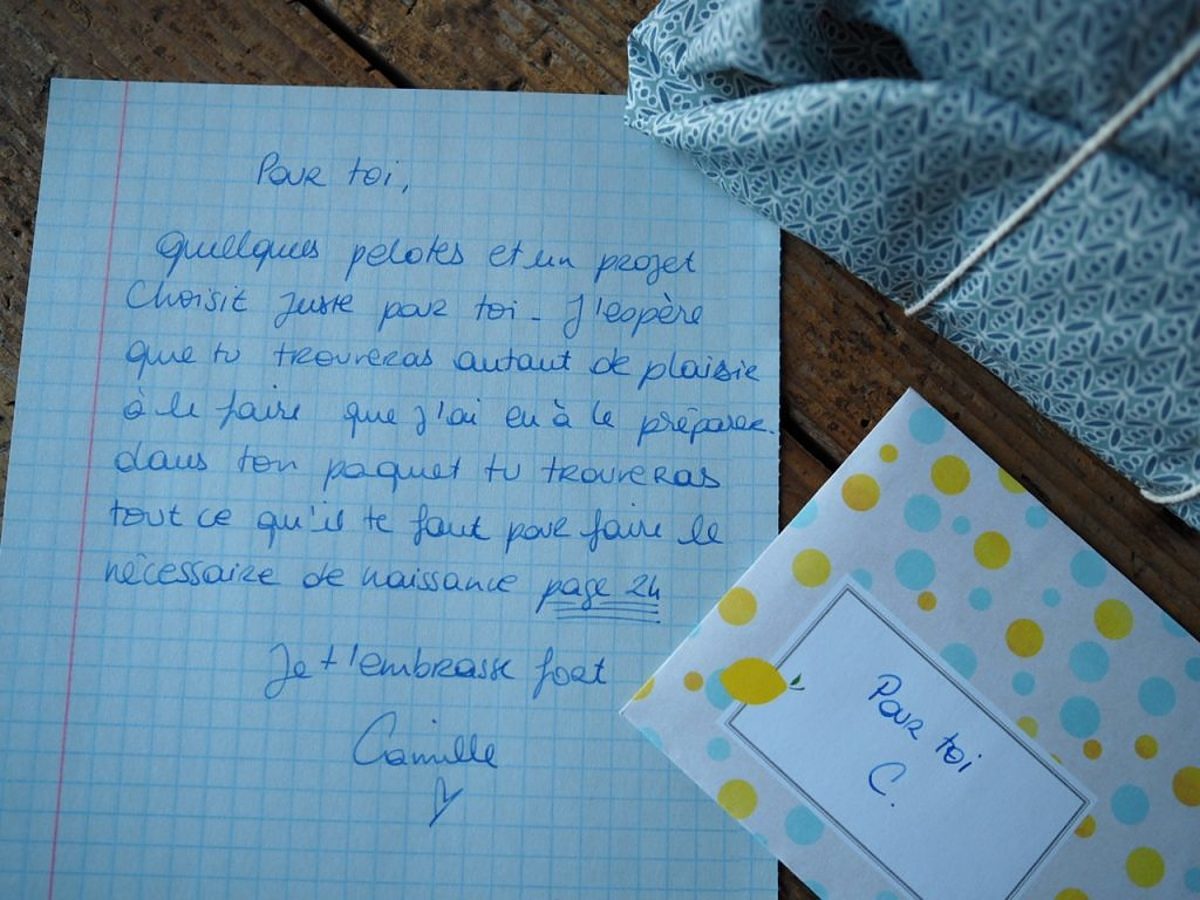 Pour toi,
Quelques pelotes et un projet
Choisit juste pour toi. J'espère
que tu trouveras autant de plaisir
à le faire que j'ai eu à le préparer.
dans ton paquet tu trouveras
tout ce qu'il te faut pour faire le
nécessaire de naissance page 24
Je t'embrasse fort
Camille
Pour toi
C.